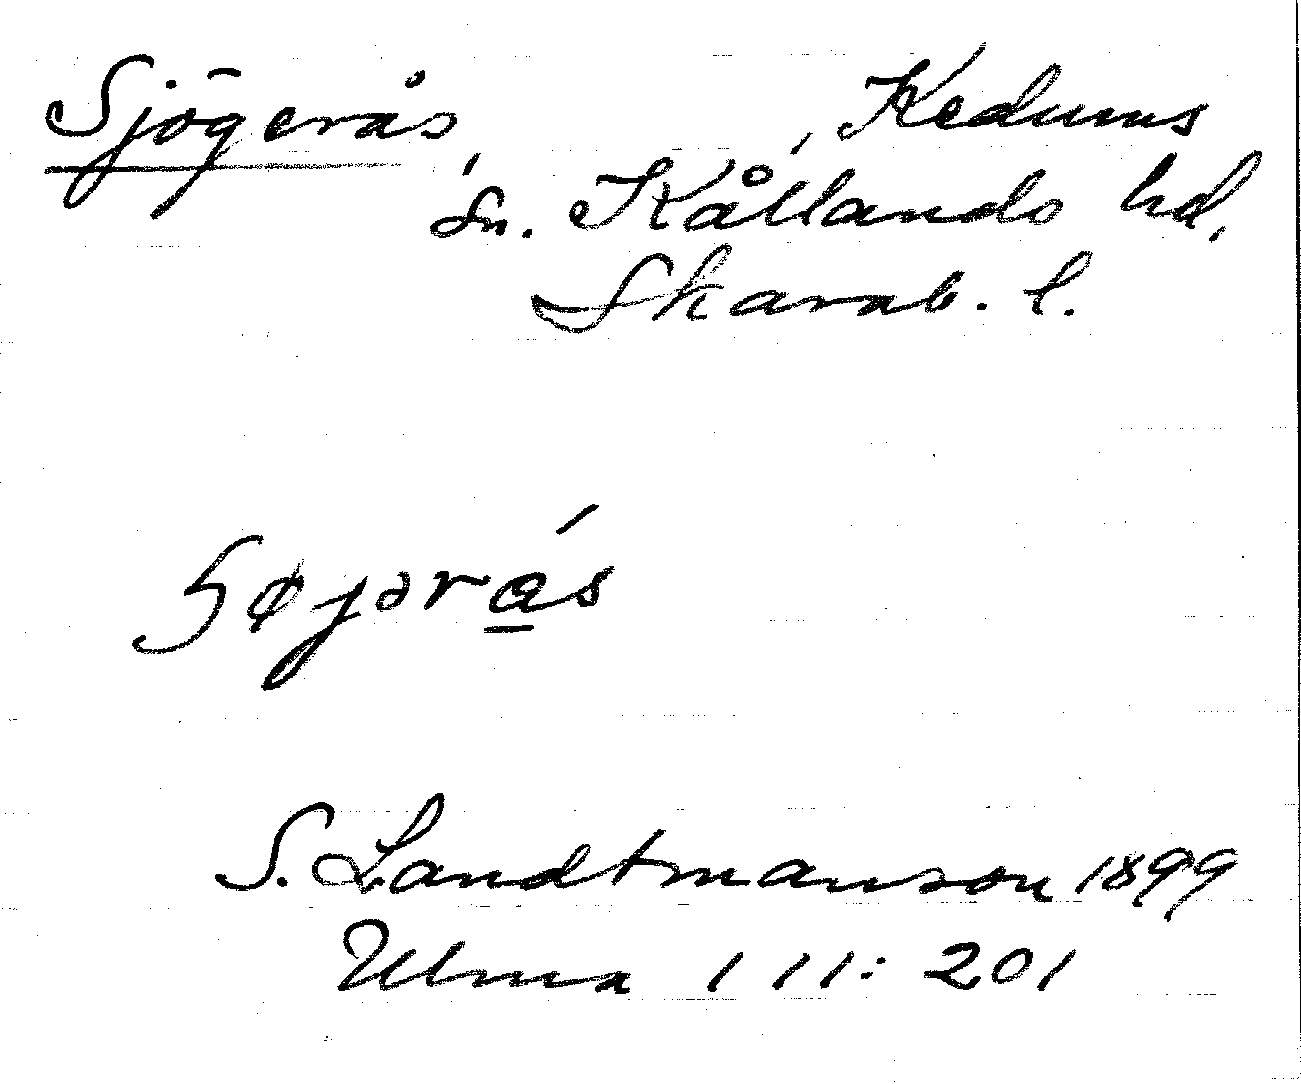 Sjögerås, Kedums
sn. Kållands hd,
Skarab. l.
S. Landtmanson 1899
Ulma 111:201